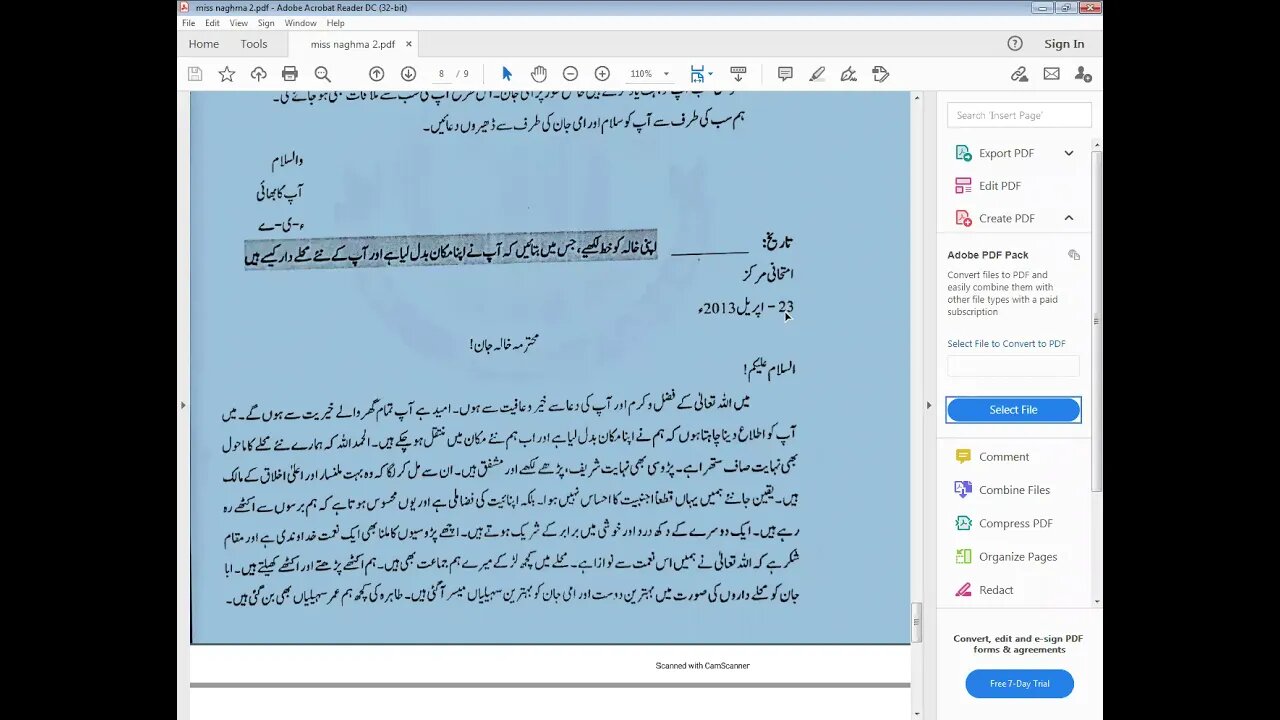 miss naghma 2.pdf - Adobe Acrobat Reader DC (32-bit)
File Edit View Sign Window Help
Home Tools miss naghma 2.pdf × ? Sign In
8 / 9 110%
ہم سب کی طرف سے آپ کو سلام اور امی جان کی طرف سے ڈھیروں دعائیں۔
والسلام
آپ کا بھائی
ء-ی-ے
تاریخ: ________ اپنی خالہ کو خط لکھیے، جس میں بتائیں کہ آپ نے اپنا مکان بدل لیا ہے اور آپ کے نئے محلے دار کیسے ہیں
امتحانی مرکز
23 - اپریل 2013ء
محترمہ خالہ جان!
السلام علیکم!
میں اللہ تعالیٰ کے فضل و کرم اور آپ کی دعا سے خیر و عافیت سے ہوں۔ امید ہے آپ تمام گھر والے خیریت سے ہوں گے۔ میں
آپ کو اطلاع دینا چاہتا ہوں کہ ہم نے اپنا مکان بدل لیا ہے اور اب ہم نئے مکان میں منتقل ہو چکے ہیں۔ الحمد اللہ کہ ہمارے نئے محلے کا ماحول
بھی نہایت صاف ستھرا ہے۔ پڑوسی بھی نہایت شریف، پڑھے لکھے اور مشفق ہیں۔ ان سے مل کر لگا کہ وہ بہت ملنسار اور اعلیٰ اخلاق کے مالک
ہیں۔ یقین جانئے ہمیں یہاں قطعاً اجنبیت کا احساس نہیں ہوا۔ بلکہ اپنائیت کی فضا ملی ہے اور یوں محسوس ہوتا ہے کہ ہم برسوں سے اکٹھے رہ
رہے ہیں۔ ایک دوسرے کے دکھ درد اور خوشی میں برابر کے شریک ہوتے ہیں۔ اچھے پڑوسیوں کا ملنا بھی ایک نعمت خداوندی ہے اور مقام
شکر ہے کہ اللہ تعالیٰ نے ہمیں اس نعمت سے نوازا ہے۔ محلے میں کچھ لڑکے میرے ہم جماعت بھی ہیں۔ ہم اکٹھے پڑھتے اور اکٹھے کھیلتے ہیں۔ ابا
جان کو محلے داروں کی صورت میں بہترین دوست اور امی جان کو بہترین سہیلیاں میسر آگئی ہیں۔ طاہرہ کی کچھ ہم عمر سہیلیاں بھی بن گئی ہیں۔
Scanned with CamScanner
Search 'Insert Page'
Export PDF
Edit PDF
Create PDF
Adobe PDF Pack
Convert files to PDF and
easily combine them with
other file types with a paid
subscription
Select File to Convert to PDF
Select File
Comment
Combine Files
Compress PDF
Organize Pages
Redact
Convert, edit and e-sign PDF
forms & agreements
Free 7-Day Trial